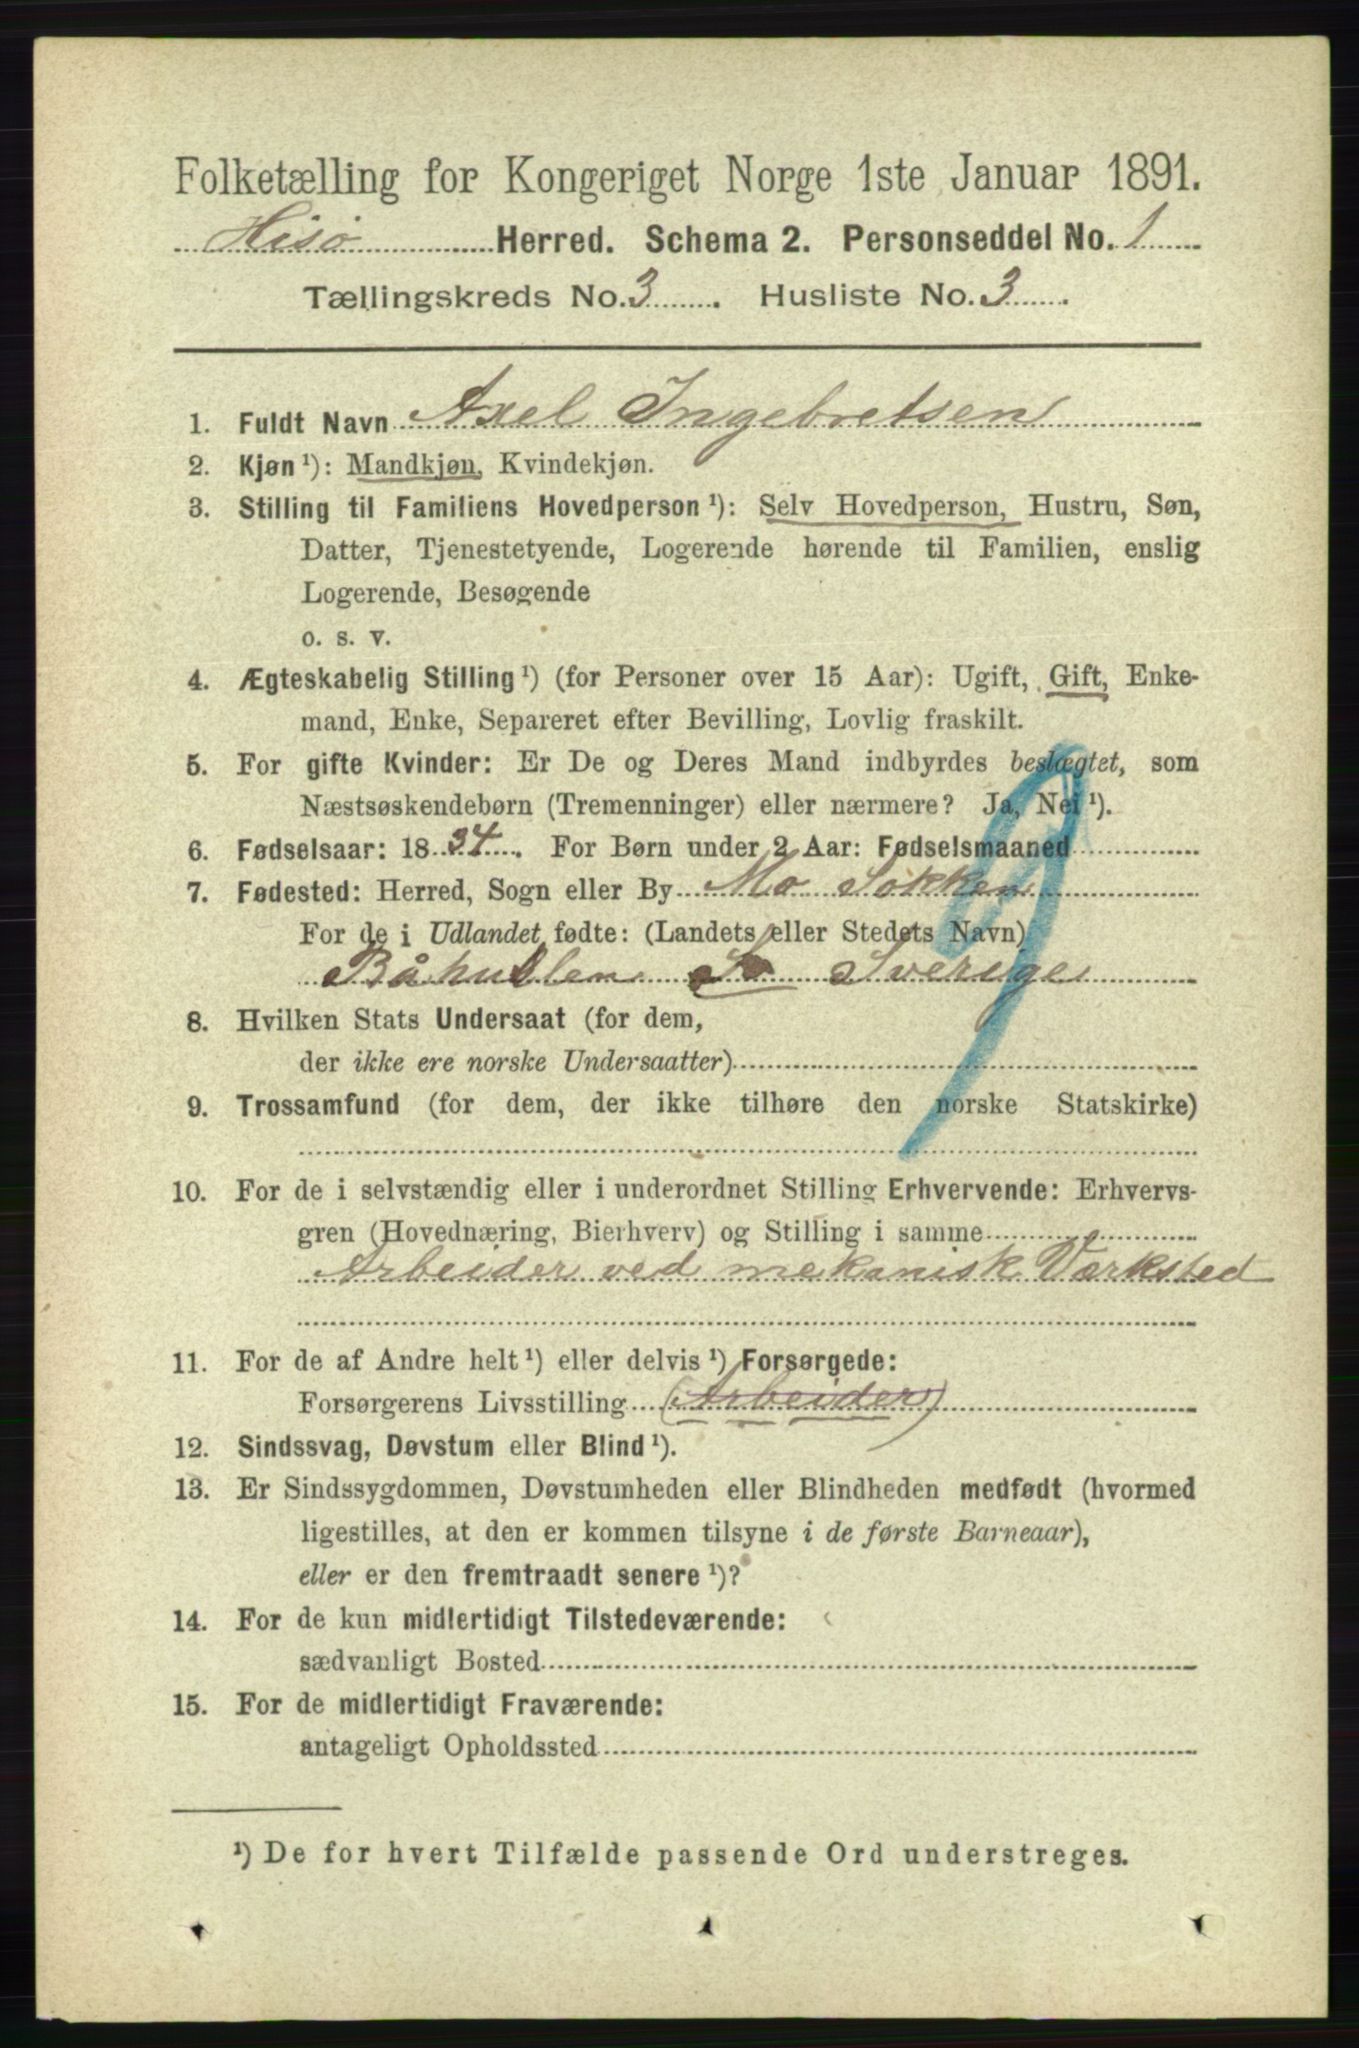 Folketælling for Kongeriget Norge 1ste Januar 1891.
Hisø Herred. Schema 2. Personseddel No. 1
Tællingskreds No. 3. Husliste No. 3.
1. Fuldt Navn Axel Ingebretsen
2. Kjøn ¹): Mandkjøn, Kvindekjøn.
3. Stilling til Familiens Hovedperson ¹): Selv Hovedperson, Hustru, Søn,
Datter, Tjenestetyende, Logerende hørende til Familien, enslig
Logerende, Besøgende
o. s. v.
4. Ægteskabelig Stilling ¹) (for Personer over 15 Aar): Ugift, Gift, Enke-
mand, Enke, Separeret efter Bevilling, Lovlig fraskilt.
5. For gifte Kvinder: Er De og Deres Mand indbyrdes beslægtet, som
Næstsøskendebørn (Tremenninger) eller nærmere? Ja, Nei ¹).
6. Fødselsaar: 1834. For Børn under 2 Aar: Fødselsmaaned
7. Fødested: Herred, Sogn eller By Mo Sokken
For de i Udlandet fødte: (Landets eller Stedets Navn)
Båhuslen S Sverige
8. Hvilken Stats Undersaat (for dem,
der ikke ere norske Undersaatter)
9. Trossamfund (for dem, der ikke tilhøre den norske Statskirke)
10. For de i selvstændig eller i underordnet Stilling Erhvervende: Erhvervs-
gren (Hovednæring, Bierhverv) og Stilling i samme
Arbeider ved mekanisk Værksted
11. For de af Andre helt ¹) eller delvis ¹) Forsørgede:
Forsørgerens Livsstilling (Arbeider)
12. Sindssvag, Døvstum eller Blind ¹).
13. Er Sindssygdommen, Døvstumheden eller Blindheden medfødt (hvormed
ligestilles, at den er kommen tilsyne i de første Barneaar),
eller er den fremtraadt senere ¹)?
14. For de kun midlertidigt Tilstedeværende:
sædvanligt Bosted
15. For de midlertidigt Fraværende:
antageligt Opholdssted
¹) De for hvert Tilfælde passende Ord understreges.